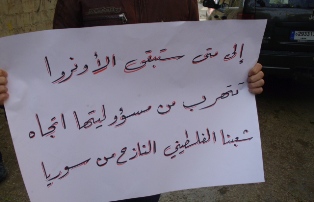 إلى متى ستبقى الأونروا
تتهرب من مسؤوليتها اتجاه
شعبنا الفلسطيني النازح من سوريا